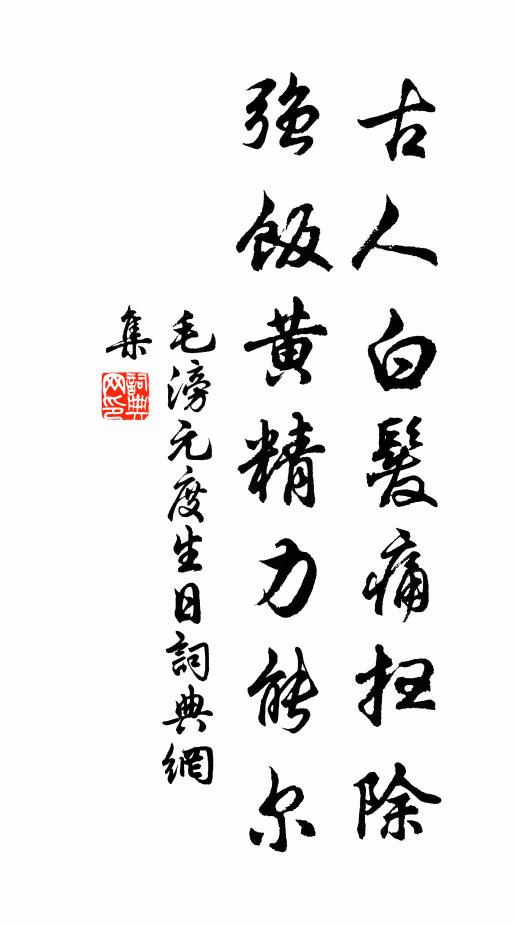 古人白髮痛扫除
强飯黄精力能尔
毛滂元度生日詞典網
集
詞典网印